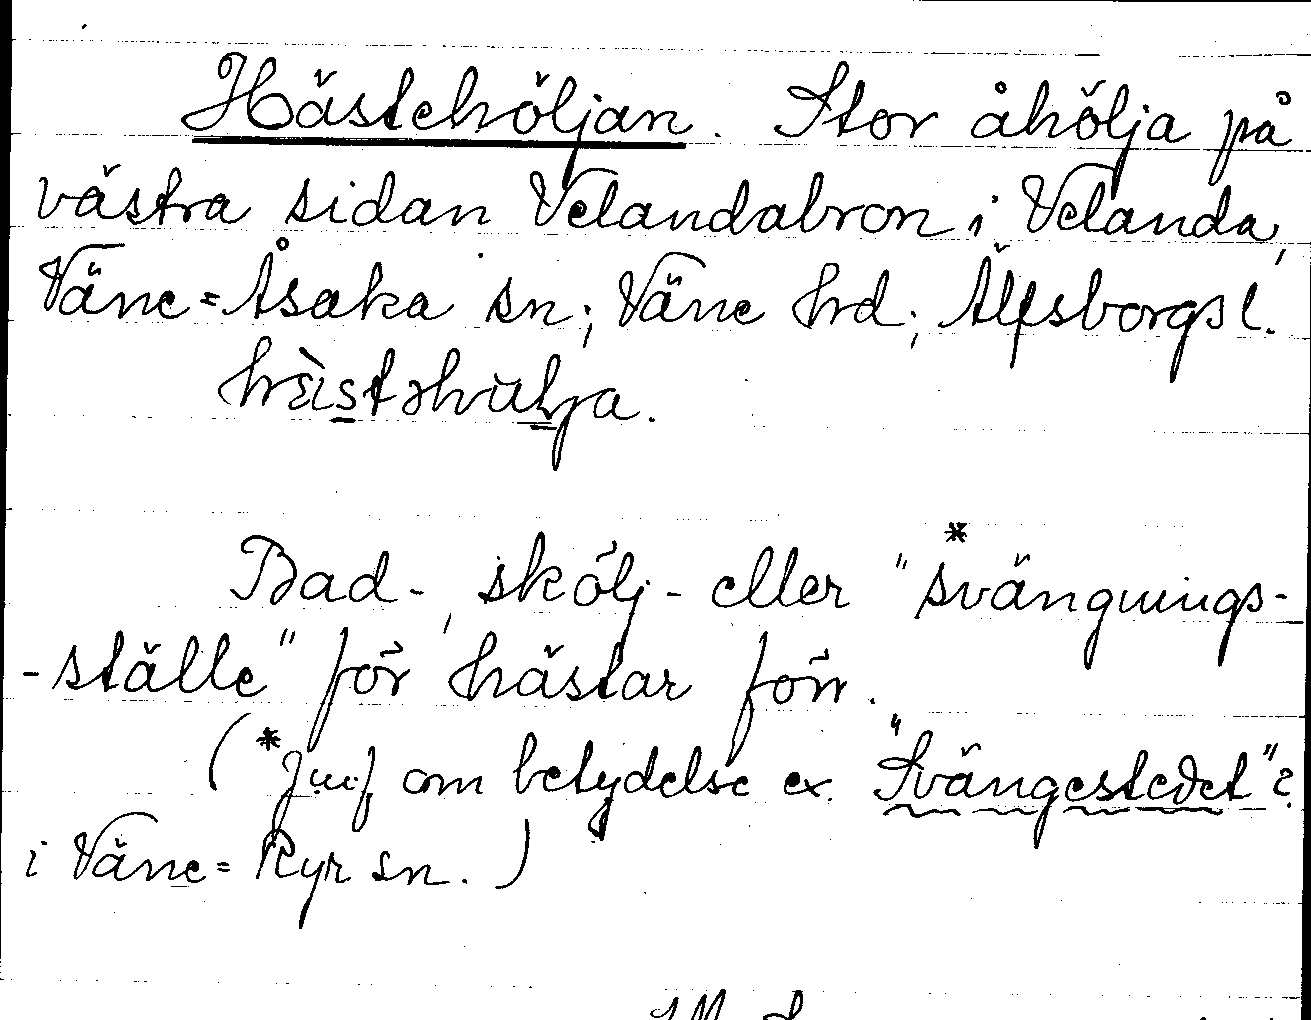 Hästehöljan. Stor åhölja på
västra sidan Velandabron i Velanda,
Väne=Åsaka sn; Väne hrd; Älfsborgs l.
Bad-, skölj- eller "svängnings-*
-ställe" för hästar förr.
(*Jmf om betydelse ex. "Svängestedet"?
i Väne=Ryr sn.)